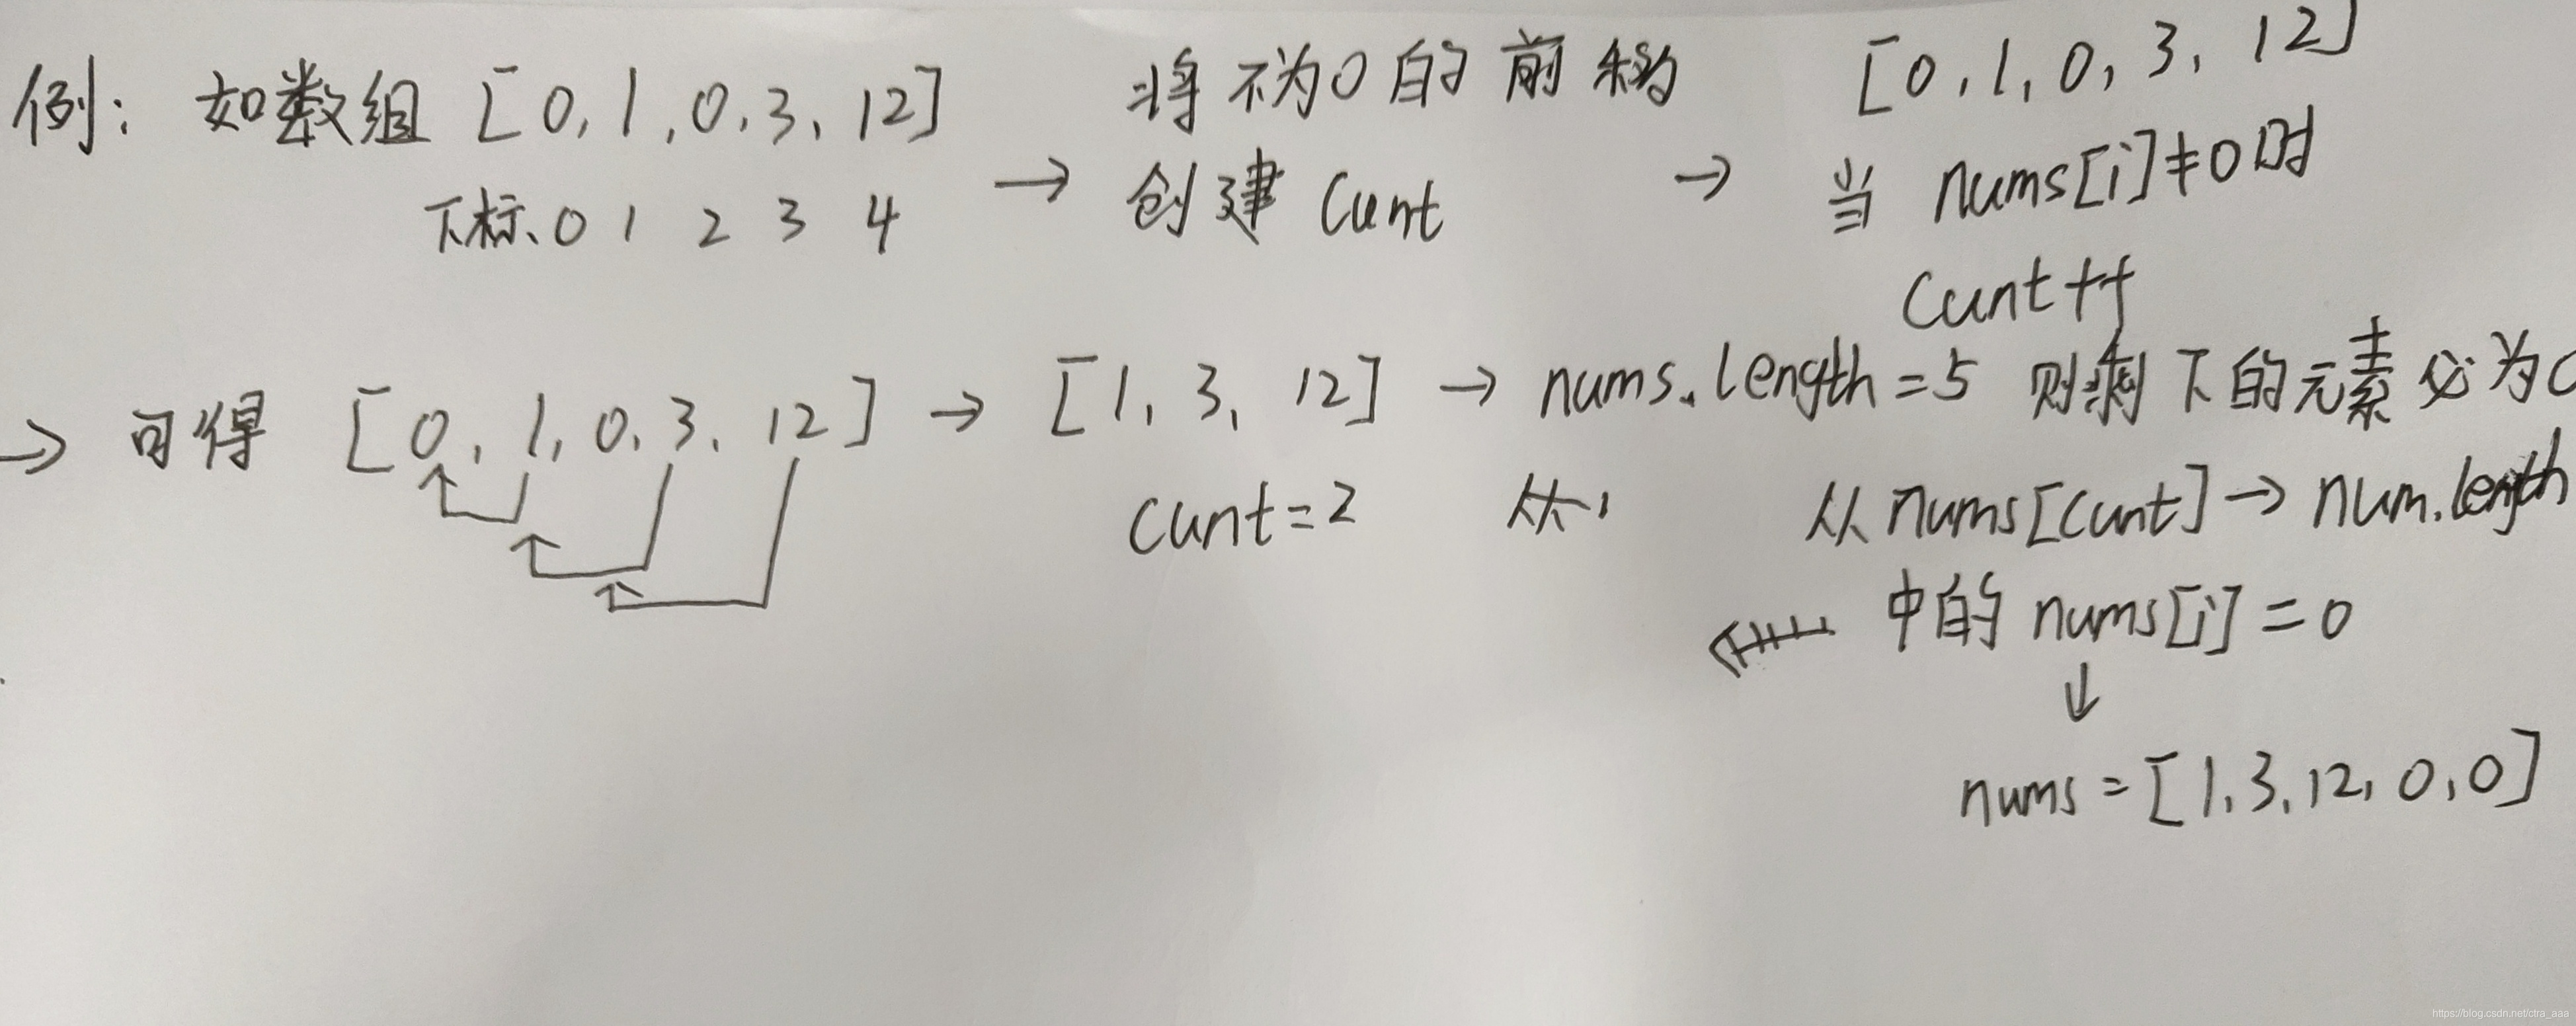 例: 如数组 [0,1,0,3,12]
下标、0 1 2 3 4
→ 将不为0的前移
创建 Cunt
[0,1,0,3,12]
→ 当 nums[i]≠0时
Cunt++
→ 可得 [0,1,0,3,12] → [1,3,12] → nums.length=5 则剩下的元素必为0
cunt=2
从nums[cunt]→num.length
中的 nums[i]=0
↓
nums=[1,3,12,0,0]
https://blog.csdn.net/ctra_aaa